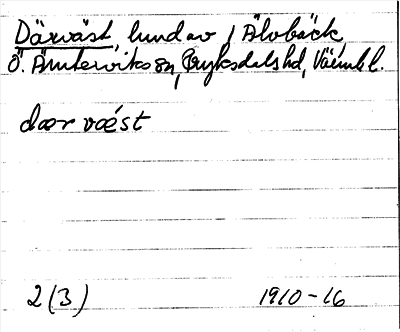 Därväst, lund av / Älvbäck,
Ö. Ämterviks sn, Fryksdals hd, Värml.
dær vǽst
2(3) 1910-16